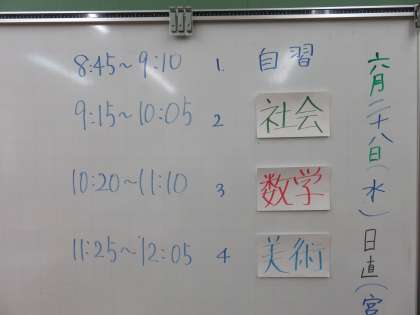 8:45～9:10 1. 自習
9:15～10:05 2 社会
10:20～11:10 3 数学
11:25～12:05 4 美術
六月二十八日(水)日直(宮